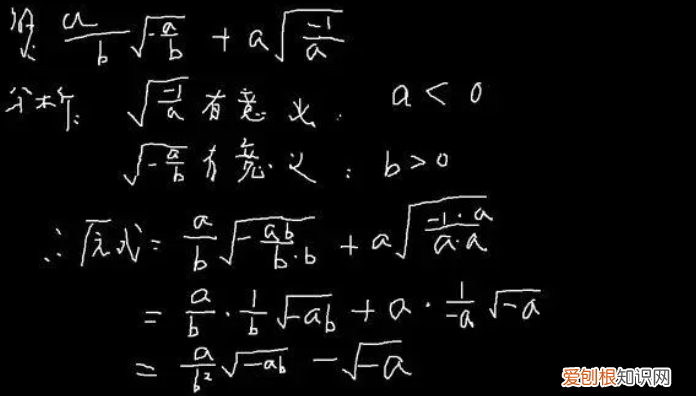 例: a/b √(-a/b) + a√(-1/a)
分析: √(-1/a) 有意义: a < 0
√(-a/b) 有意义: b > 0
∴ 原式 = a/b √(-ab/(b·b)) + a√((-1·a)/(a·a))
= a/b · 1/b √(-ab) + a · 1/(-a) √(-a)
= a/b² √(-ab) - √(-a)
爱刨根知识网